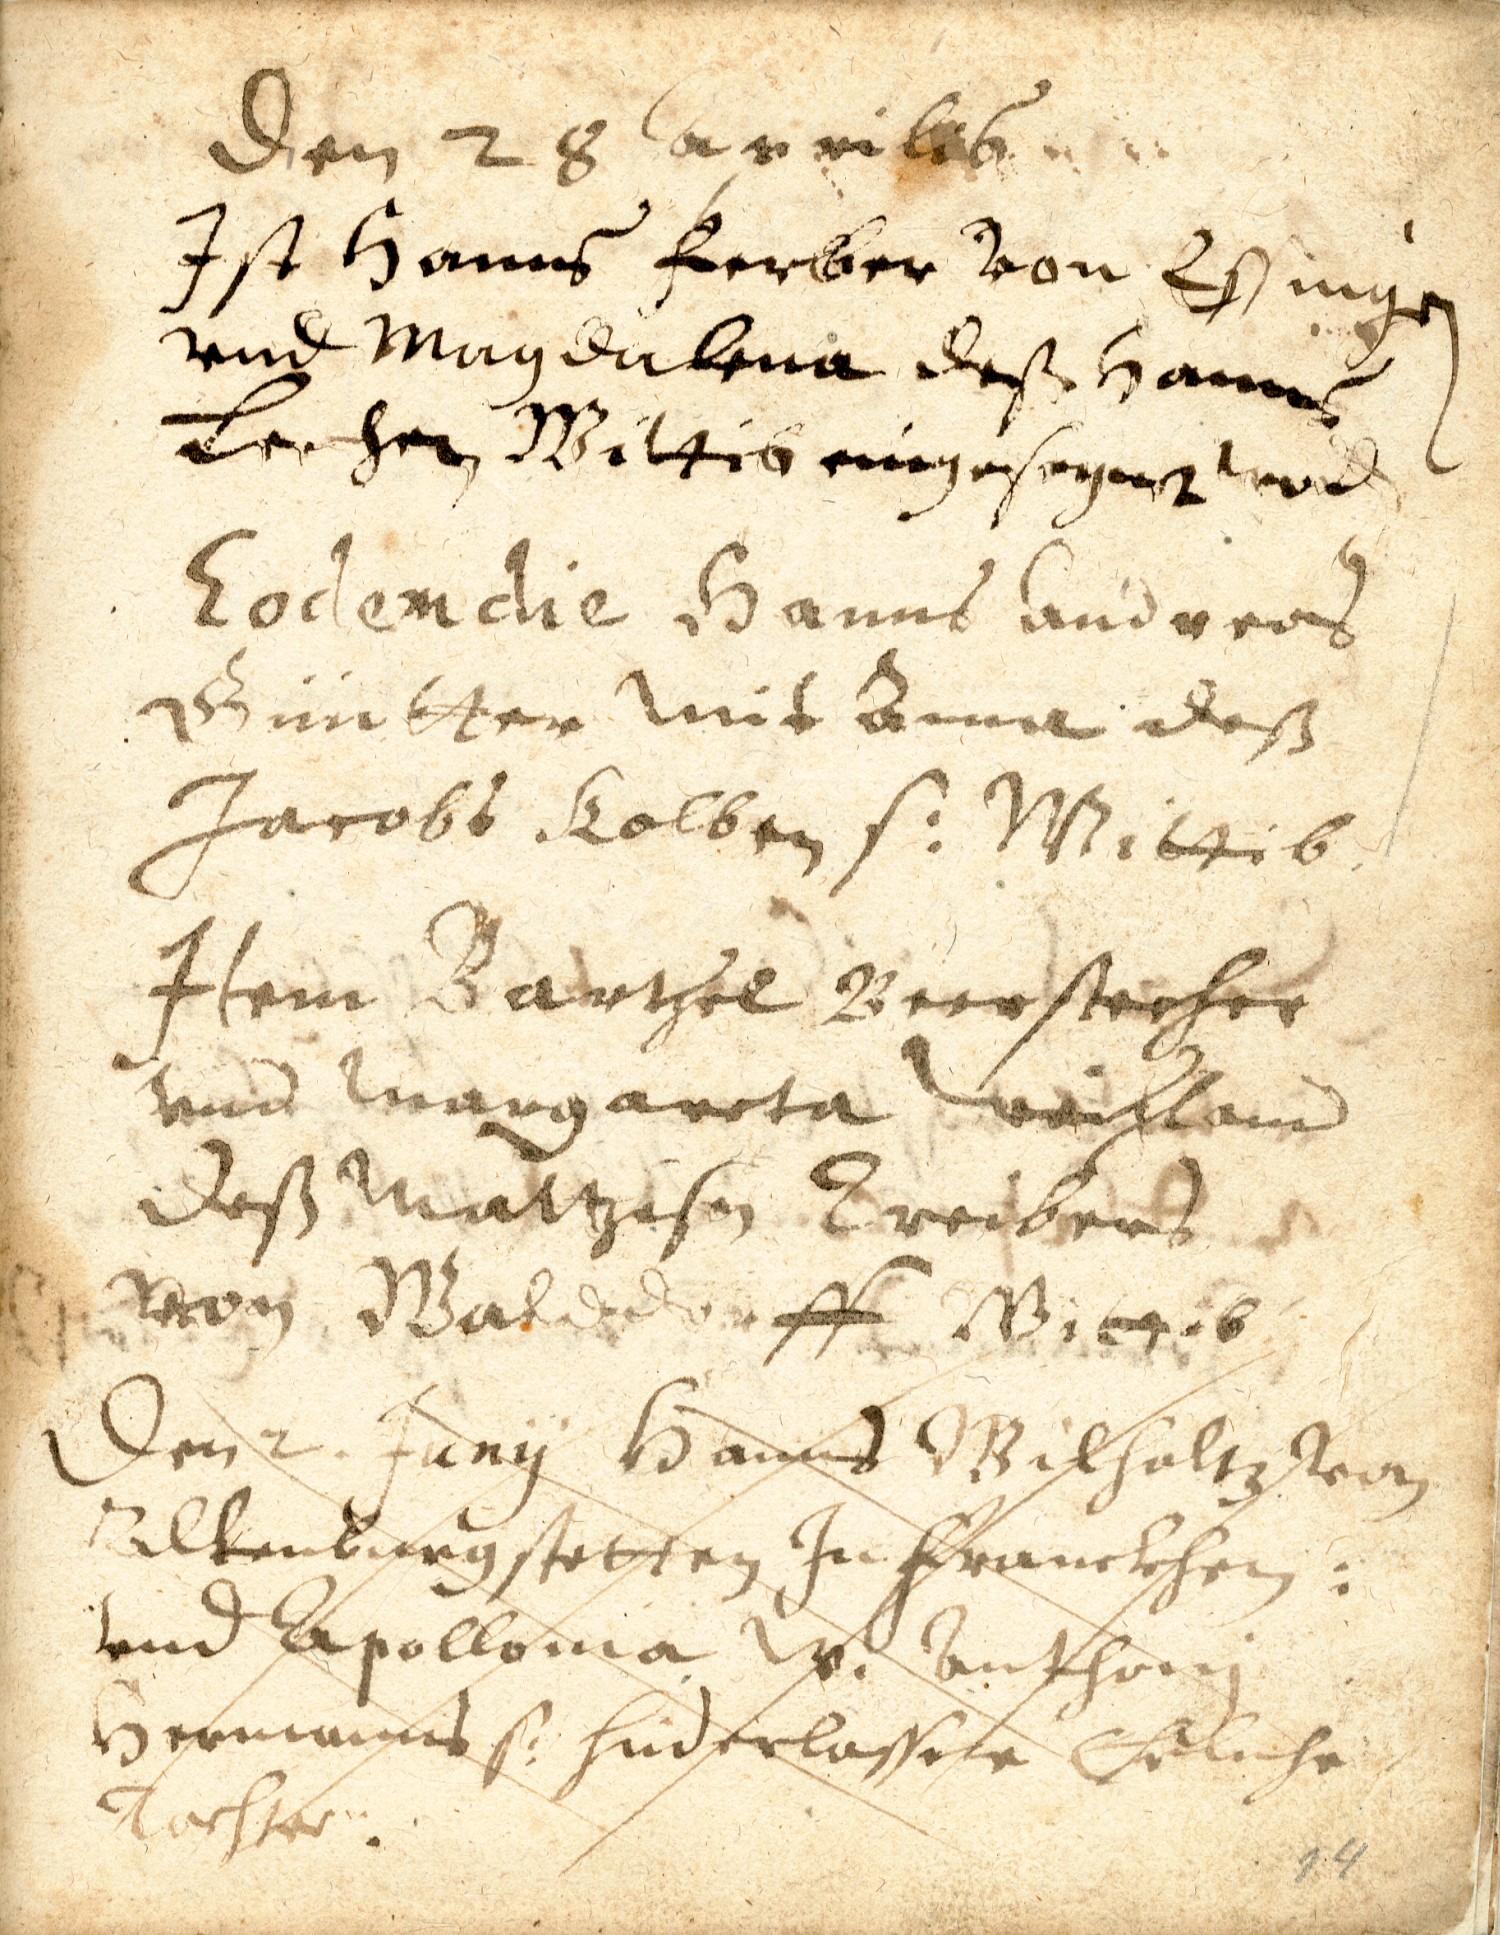 Den 28 Aprilis
Ist Hanns Ferber von Essingen
vnd Magdalena deß Hanns
Lerchen Wittib eingesegnet word
Eodem die Hanns Andreas
Güntter mit Anna deß
Jacobs Kolben s: Wittib.
Item Barthel Beerstecher
vnd Margareta weiland
deß Matthisen Treibers
von Walddorff Wittib
Den 2. Junij Hanns Wilholtz von
Alkenburgstetten In Franckhen:
vnd Apollonia w. Anthonij
Hermanns s: hinderlassene Eheliche
Tochter.
14